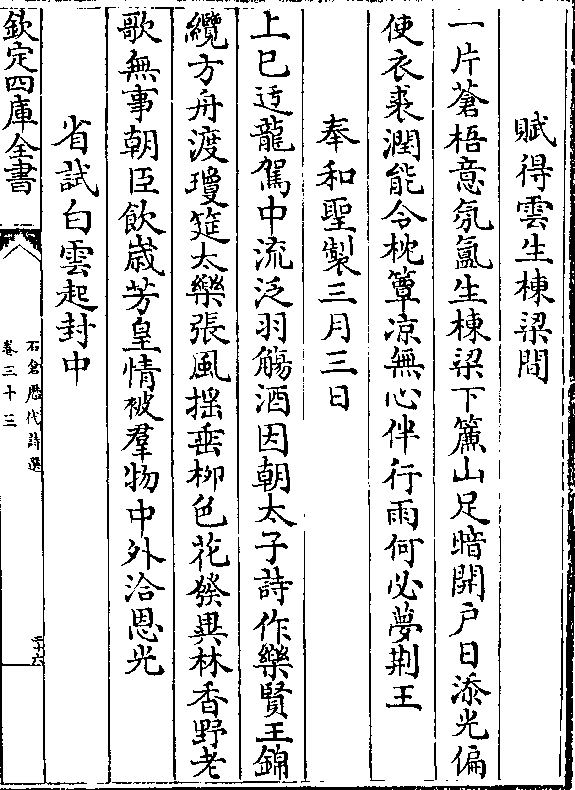 賦得雲生棟梁間
一片蒼梧意氛氲生棟梁下簾山足暗開戶日添光偏
使衣裘潤能令枕簟凉無心伴行雨何必夢荆王
奉和聖製三月三日
上巳迓龍駕中流泛羽觴酒因朝太子詩作樂賢王錦
纜方舟渡瓊筵太樂張風揺垂柳色花發異林香野老
歌無事朝臣飲歳芳皇情被羣物中外洽恩光
省試白雲起封中
欽定四庫全書
石倉歴代詩選
卷三十三
二十六